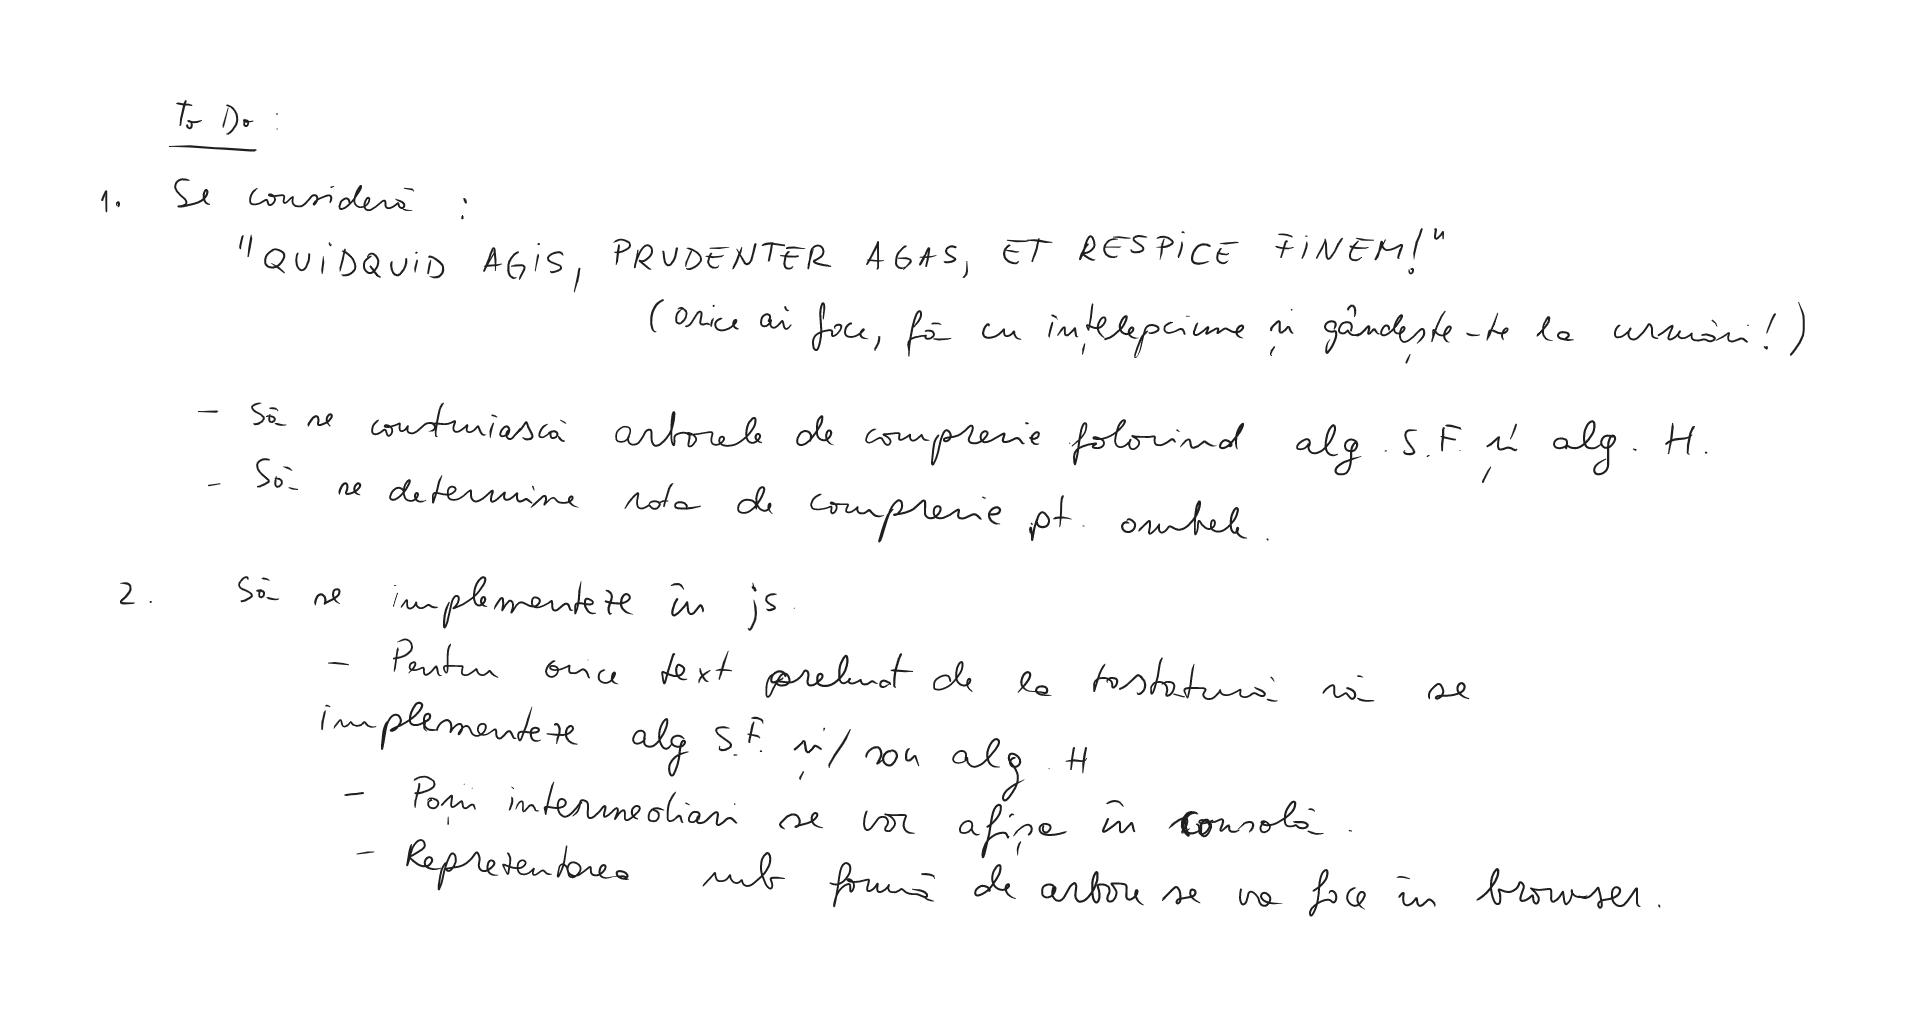 To Do :
1. Se consideră :
"QUIDQUID AGIS, PRUDENTER AGAS, ET RESPICE FINEM!"
(orice ai face, fă cu înțelepciune și gândește-te la urmări!)
- Să se construiască arborele de compresie folosind alg. S.F. și alg. H.
- Să se determine rata de compresie pt. ambele.
2. Să se implementeze în js.
- Pentru orice text preluat de la tastatură să se
implementeze alg S.F. și/sau alg. H
- Pașii intermediari se vor afișa în consolă.
- Reprezentarea sub formă de arbore se va face în browser.